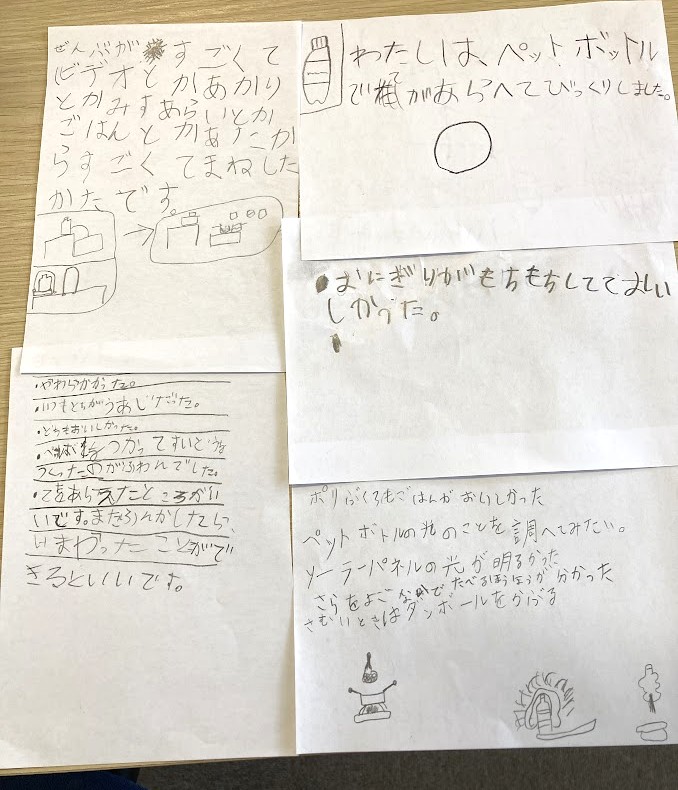 ぜんぶがすごくて
ビデオとかあかり
とかみずあらいとか
ごはんとかあたか
らすごくてまねした
かたです。
わたしは、ペットボトル
で手があらへてびっくりしました。
・おにぎりがもちもちしてておいし
しかった。
・やわらかかった。
・いつもとちがうあじだった。
・とてもおいしかった。
つかってすいどうを
つくったのがふわんでした。
・てをあらえたところがい
いです。またひなんかしてたら、
いまわったことがで
きるといいです。
ポリぶくろもごはんがおいしかった
ペットボトルの光のことを調へてみたい。
ソーラーパネルの光が明るかった
さらをよごなかでたべるほうほうが分かった
さむいときはダンボールをかぶる